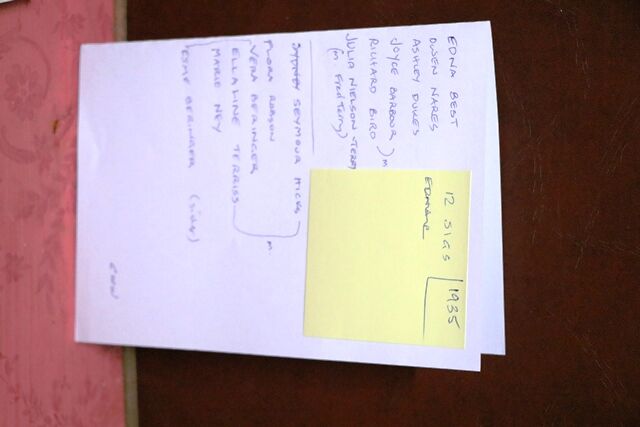 EDNA BEST
OWEN NARES
ASHLEY DUKES
JOYCE BARBOUR ) m
RICHARD BIRD
JULIA NIELSON-TERRY
(m Fred Terry)
SYDNEY SEYMOUR HICKS
FLORA ROBSON
VERA BERINGER
ELLALINE TERRISS m
MARIE NEY
ESME BERINGER (sister)
12 SIGS
1935